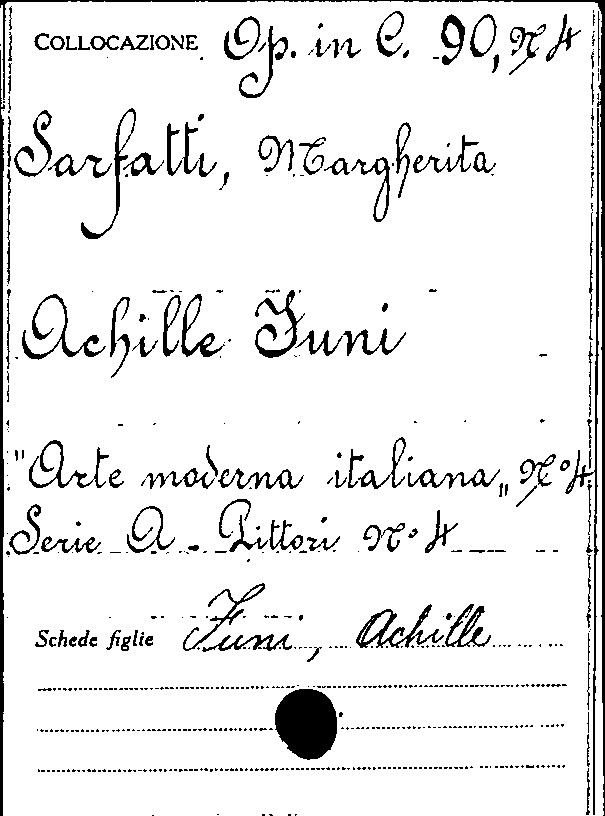 COLLOCAZIONE Op. in C. 90, N 4
Sarfatti, Margherita
Achille Funi
"Arte moderna italiana„ N° 4
Serie A - Pittori N° 4
Schede figlie Funi, Achille